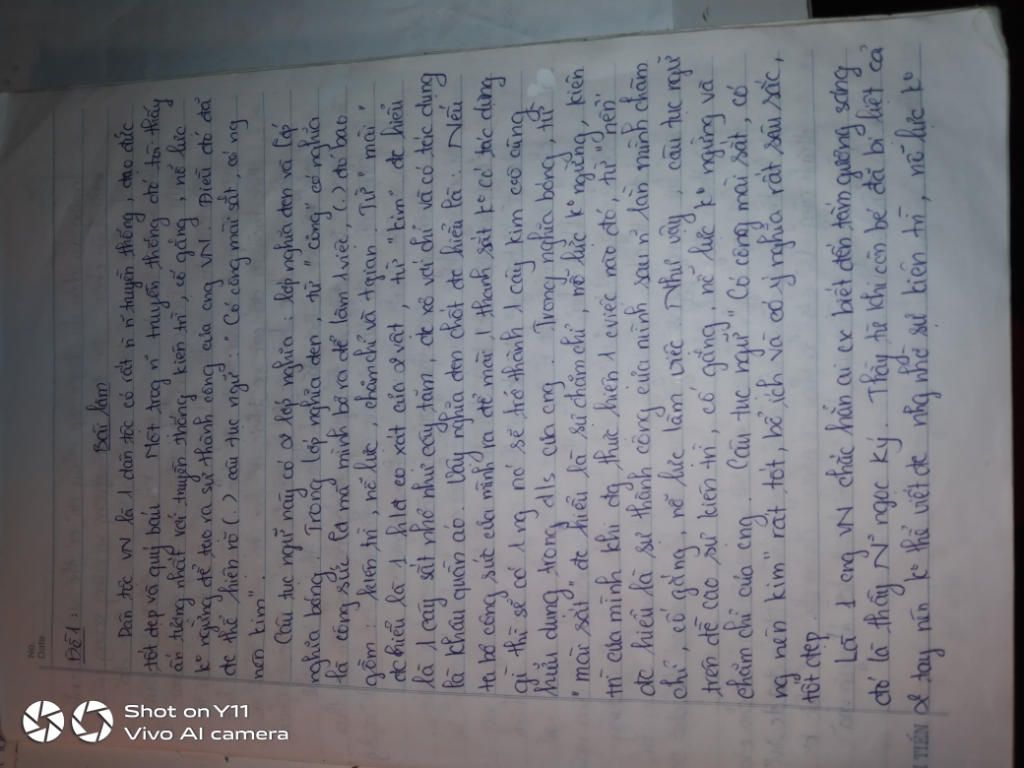 No.
Date
Đề 1:
Bài làm
Dân tộc VN là 1 dân tộc có rất n` truyền thống, đạo đức
tốt đẹp và quý báu. Một trog n~ truyền thống đó tôi thấy
ấn tượng nhất với truyền thống kiên trì, cố gắng, nổ lực
k° ngừng để tạo ra sự thành công của cng VN. Điều đó đã
đc thể hiện rõ (.) câu tục ngữ: " Có công mài sắt, có ng
nên kim".
Câu tục ngữ này có 2 lớp nghĩa: lớp nghĩa đen và lớp
nghĩa bóng. Trong lớp nghĩa đen, từ "công" có nghĩa
là công sức của mà mình bỏ ra để làm 1 việc, (.) đó bao
gồm: kiên trì, nổ lực, chăm chỉ và tgian. Từ "mài"
đc hiểu là 1 h/đ cọ xát của 2 vật, từ "kim" đc hiểu
là 1 cây sắt nhỏ như cây tăm, đc xỏ với chỉ và có tác dụng
là khâu quần áo. Vậy nghĩa đen chốt đc hiểu là: Nếu
ta bỏ công sức của mình ra để mài 1 thanh sắt k° có tác dụng
gì thì sẽ có 1 ng nó sẽ trở thành 1 cây kim có công
hữu dụng trong đ/s của cng. Trong nghĩa bóng, từ
"mài sắt" đc hiểu là sự chăm chỉ, nổ lức k° ngừng, kiên
trì của mình khi đg thực hiện 1 cviệc nào đó, từ "nên"
đc hiểu là sự thành công của mình sau n~ lần mình chăm
chỉ, cố gắng, nổ lực làm việc. Như vậy, câu tục ngữ
trên đề cao sự kiên trì, cố gắng, nổ lức k° ngừng và
chăm chỉ của cng. Câu tục ngữ " Có công mài sắt, có
ng nên kim" rất tốt, bổ ích và có ý nghĩa rất sâu sắc,
tốt đẹp.
Là 1 cng VN chắc hẳn ai cx biết đến tấm gương sáng
đó là thầy N~ ngọc Ký. Thầy từ khi còn bé đã bị liệt cả
2 tay nên k° thể viết đc nhg nhờ sự kiên trì, nổ lực k°
TIẾN
Shot on Y11
Vivo AI camera